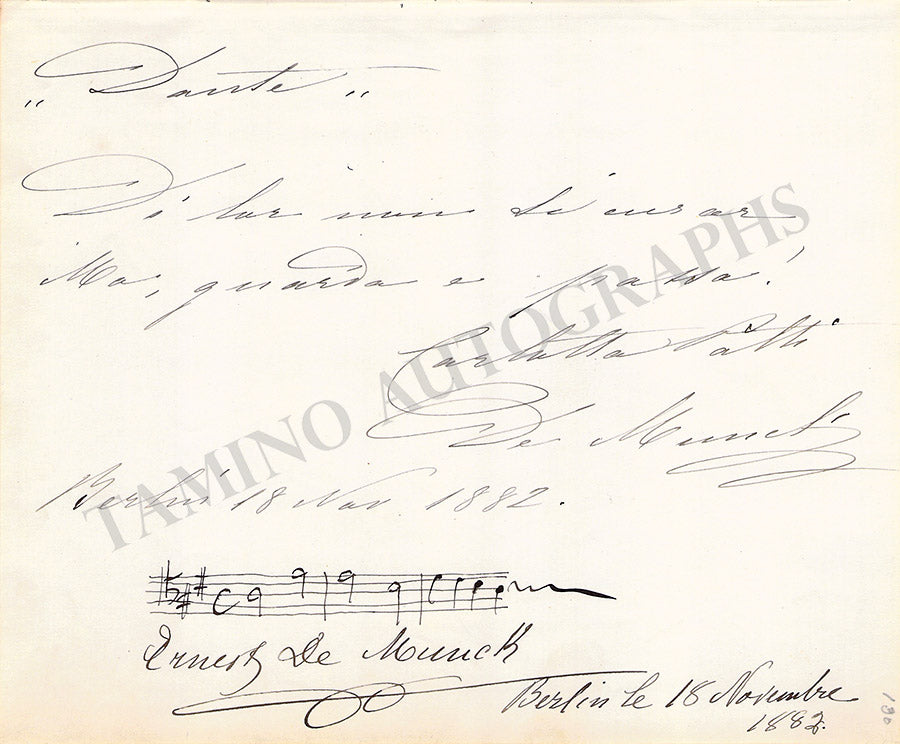 „ Dante „
Di lor non ti curar
Ma, guarda e passa!
Carlotta Patti
De Munck
Berlin 18 Nov 1882.
Ernest De Munck
Berlin le 18 Novembre
1882.
130
TAMINO AUTOGRAPHS